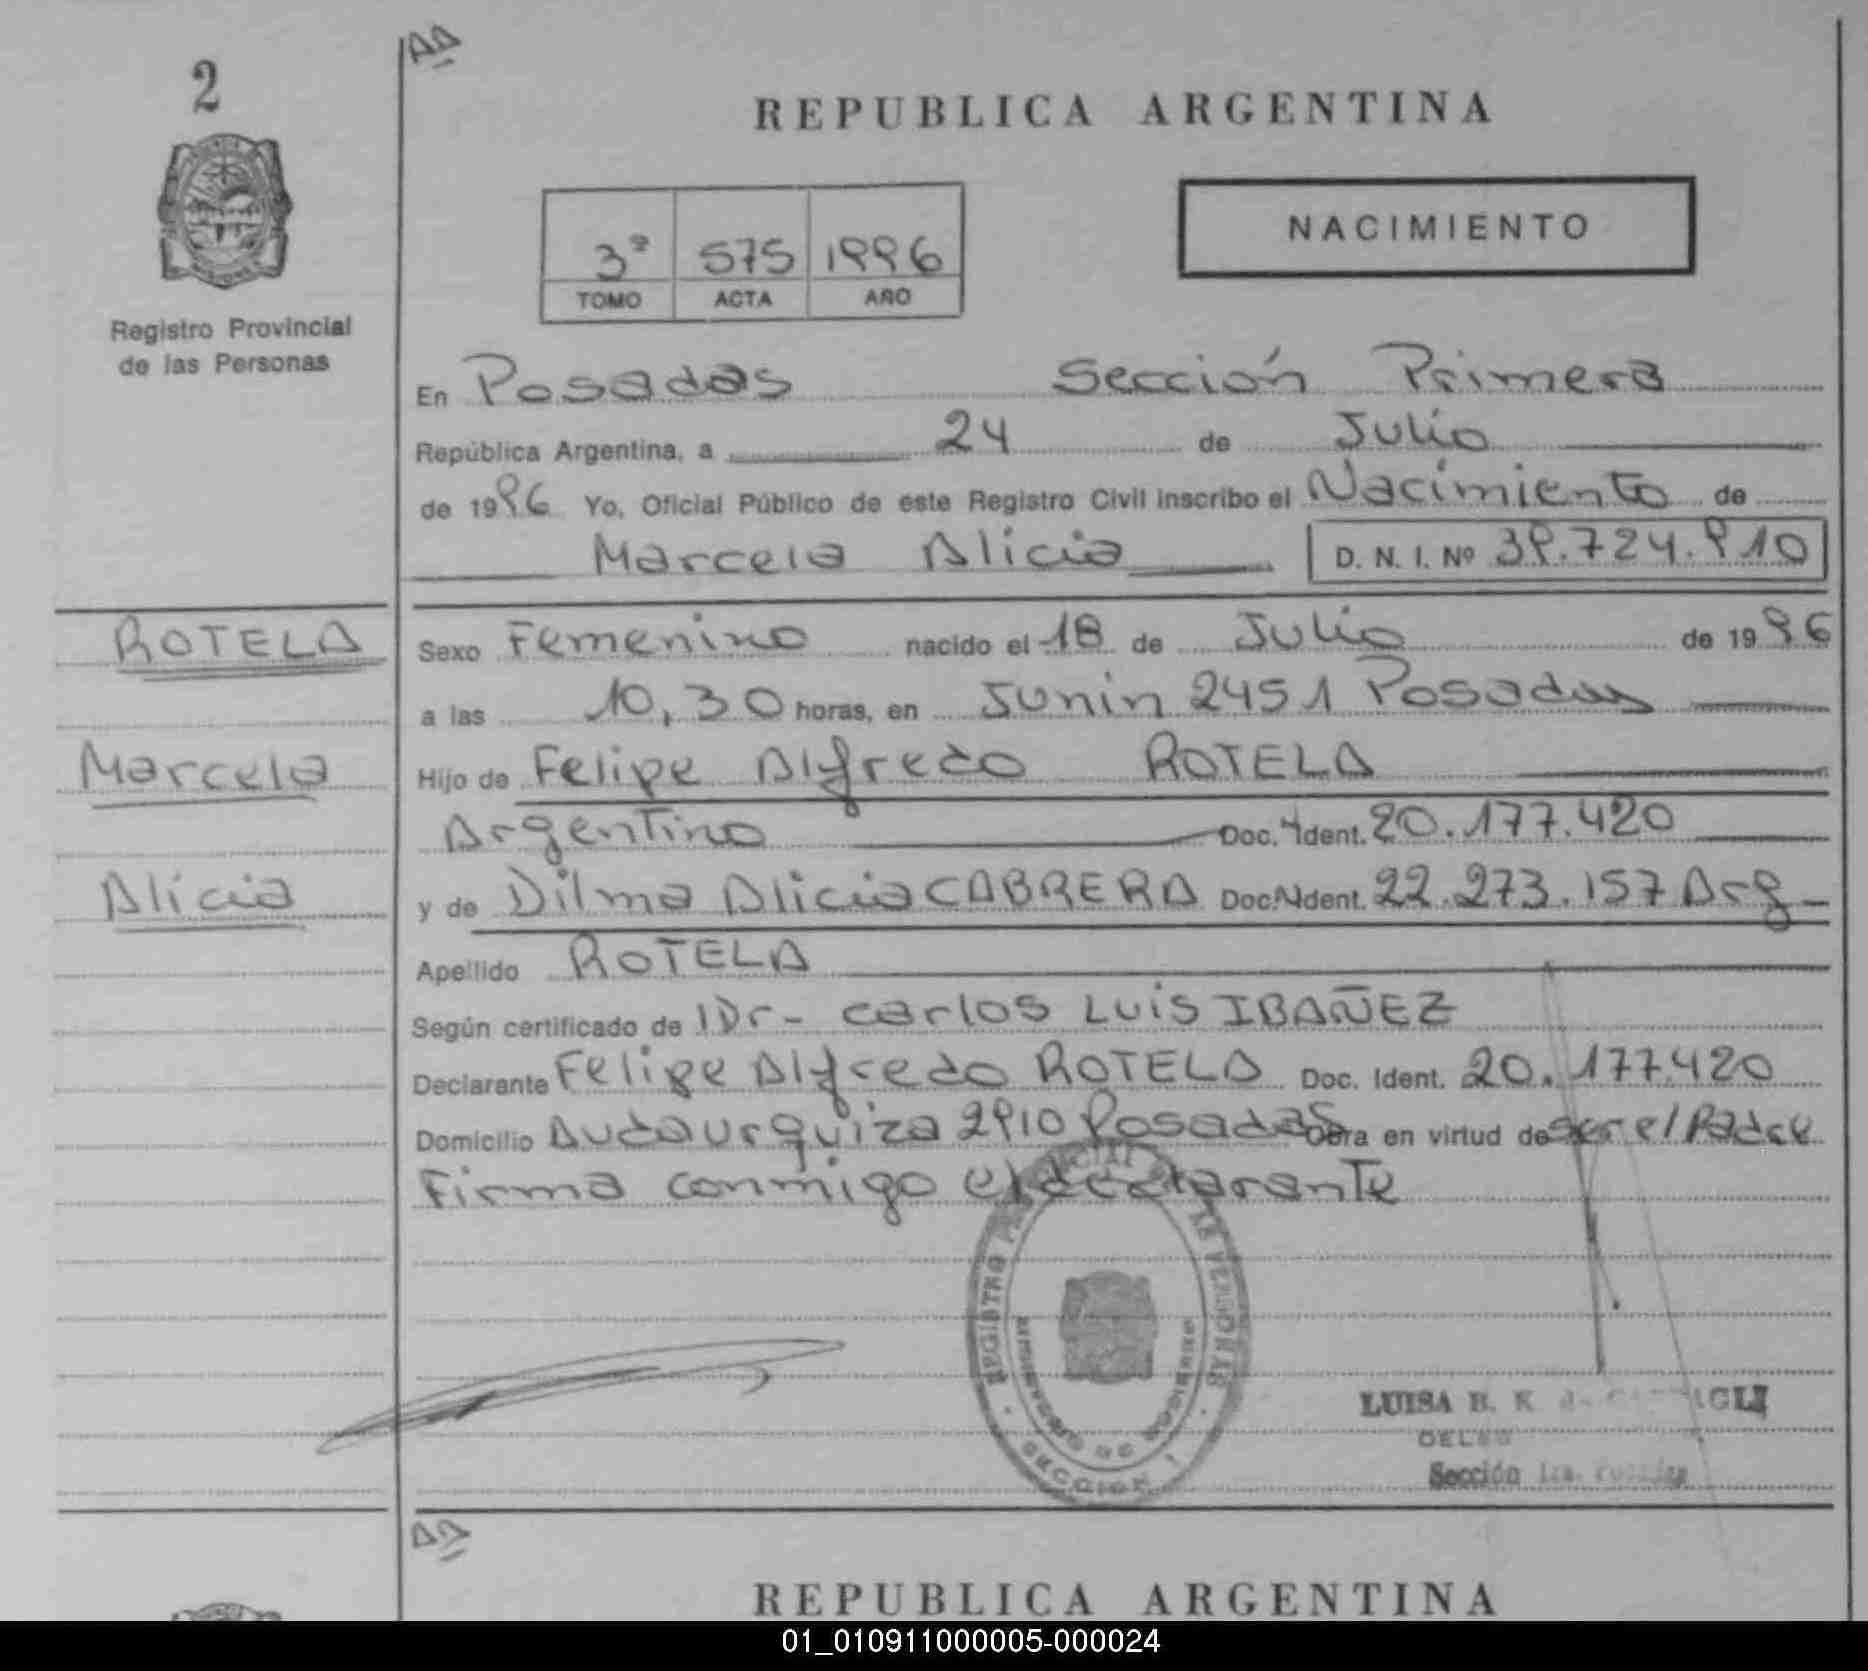 2
AA
REPUBLICA ARGENTINA
NACIMIENTO
3º 575 1996
TOMO ACTA AÑO
Registro Provincial
de las Personas
En Posadas Sección Primera
República Argentina, a 24 de Julio
de 1996 Yo, Oficial Público de este Registro Civil inscribo el Nacimiento de
Marcela Alicia D. N. I. Nº 39.724.910
ROTELA
Marcela
Alicia
Sexo Femenino nacido el 18 de Julio de 1996
a las 10,30 horas, en Junin 2451 Posadas
Hijo de Felipe Alfredo ROTELA
Argentino Doc. Ident. 20.177.420
y de Dilma Alicia CABRERA Doc. Ident. 22.273.157 Arg
Apellido ROTELA
Según certificado de Dr- Carlos Luis IBAÑEZ
Declarante Felipe Alfredo ROTELA Doc. Ident. 20.177.420
Domicilio Avda Urquiza 2910 Posadas Obra en virtud de ser el Padre
Firma conmigo el declarante
REGISTRO PROVINCIAL DE LAS PERSONAS
MINISTERIO DE GOBIERNO
SECCION 1
LUISA B. K. d
DELEG
Sección 1ra.
REPUBLICA ARGENTINA
01_010911000005-000024